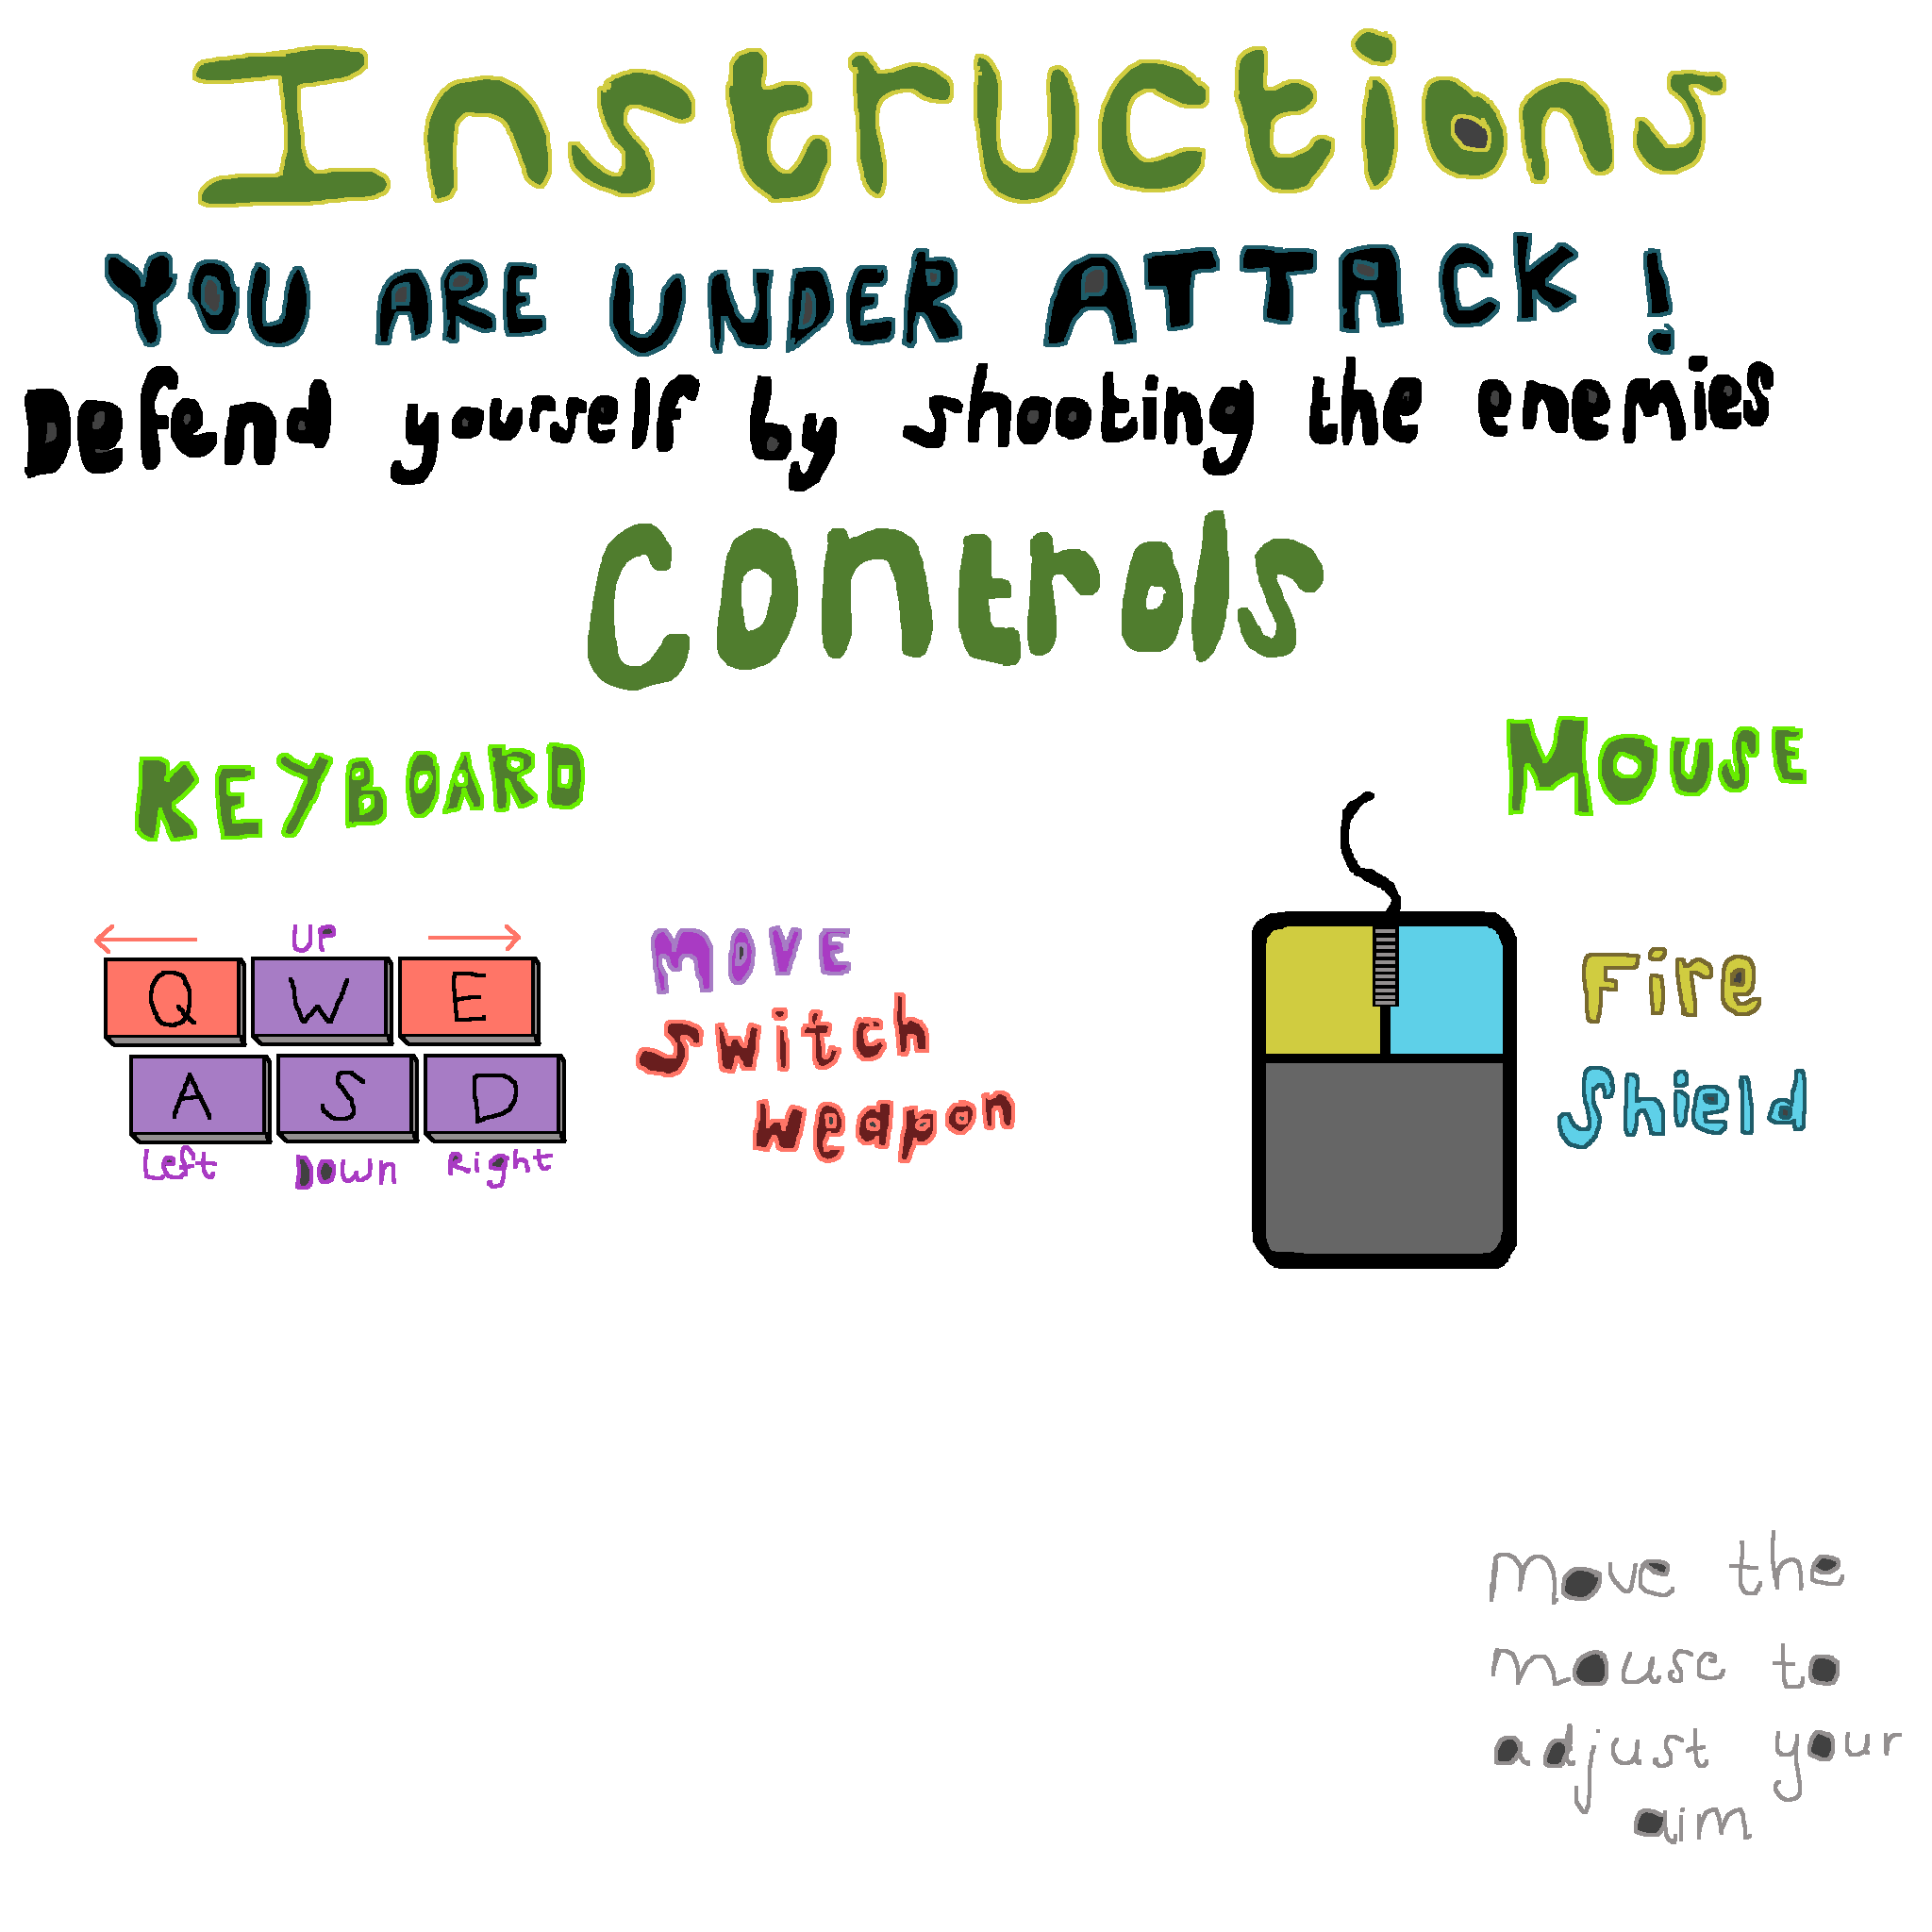 Instructions
YOU ARE UNDER ATTACK !
Defend yourself by shooting the enemies
Controls
KEYBOARD
MOUSE
UP
Q W E
A S D
Left Down Right
MOVE
Switch
weapon
Fire
Shield
move the
mouse to
adjust your
aim